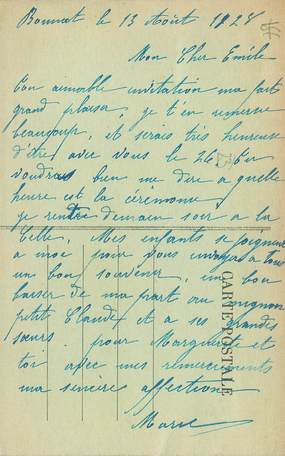 Bonnat le 13 Août 1928
Mon Cher Emile
Ton aimable invitation ma fait
grand plaisir, je t'en remercie
beaucoup, et serais très heureuse
d'être avec vous le 26
voudras bien me dire a quelle
heure est la cérémonie
je rentre demain soir a la
Celle, Mes enfants se joignent
a moi pour vous envoyer a tous
un bon souvenir, un bon
baiser de ma part au mignon
petit Claude et a ses grandes
sœurs. pour Marguerite et
toi avec mes remerciements
ma sincère affection
Marie
CARTE POSTALE